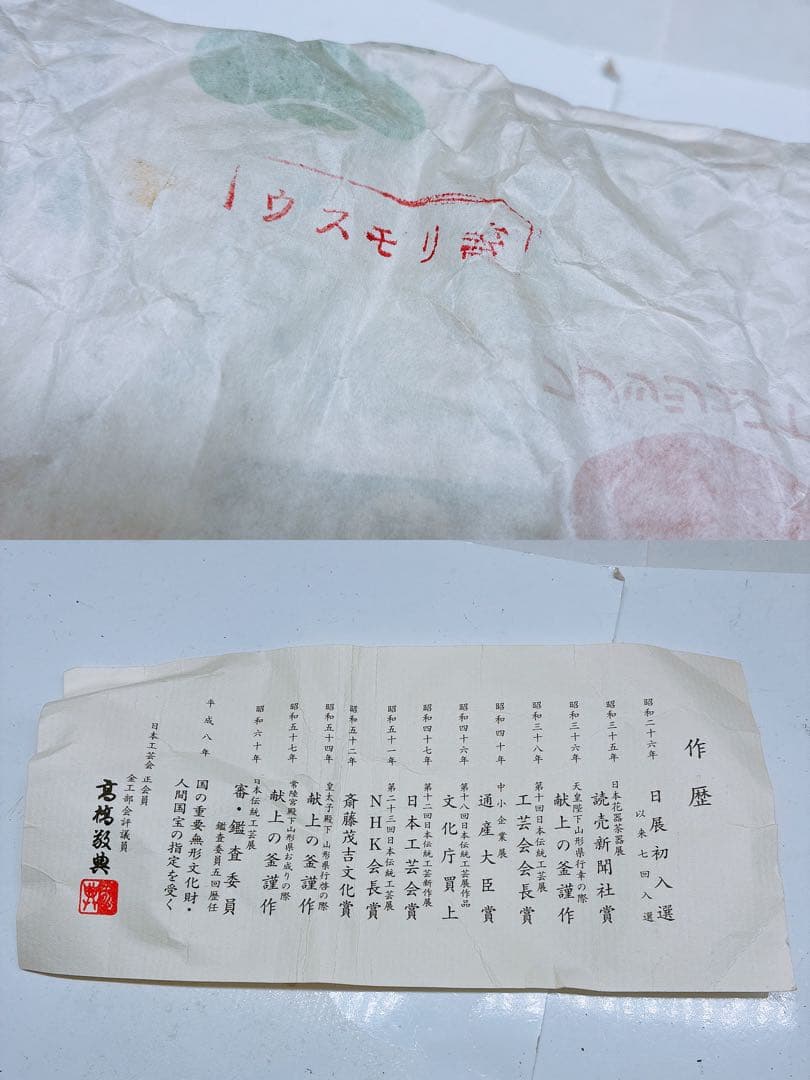 ウスモリ
作歴
昭和二十六年 日展初入選
以来七回入選
昭和三十五年 日本花器茶器展
読売新聞社賞
昭和三十六年 天皇陛下山形県行幸の際
献上の釜謹作
昭和三十八年 第十回日本伝統工芸展
工芸会会長賞
昭和四十年 中小企業展
通産大臣賞
昭和四十六年 第十八回日本伝統工芸展作品
文化庁買上
昭和四十七年 第十二回日本伝統工芸新作展
日本工芸会賞
昭和五十一年 第二十三回日本伝統工芸展
NHK会長賞
昭和五十二年 斎藤茂吉文化賞
昭和五十四年 皇太子殿下山形県行啓の際
献上の釜謹作
昭和五十七年 常陸宮殿下山形県お成りの際
献上の釜謹作
昭和六十年 日本伝統工芸展
審・鑑査委員
鑑査委員五回歴任
平成八年 国の重要無形文化財・
人間国宝の指定を受く
日本工芸会 正会員
金工部会評議員
高橋敬典